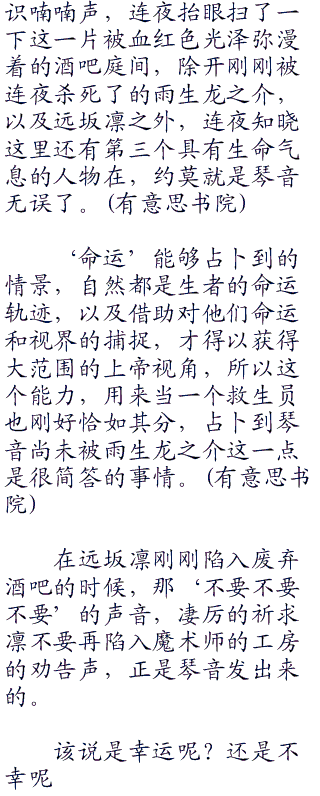 识喃喃声，连夜抬眼扫了一
下这一片被血红色光泽弥漫
着的酒吧庭间，除开刚刚被
连夜杀死了的雨生龙之介，
以及远坂凛之外，连夜知晓
这里还有第三个具有生命气
息的人物在，约莫就是琴音
无误了。(有意思书院)
‘命运’能够占卜到的
情景，自然都是生者的命运
轨迹，以及借助对他们命运
和视界的捕捉，才得以获得
大范围的上帝视角，所以这
个能力，用来当一个救生员
也刚好恰如其分，占卜到琴
音尚未被雨生龙之介这一点
是很简答的事情。(有意思书
院)
在远坂凛刚刚陷入废弃
酒吧的时候，那‘不要不要
不要’的声音，凄厉的祈求
凛不要再陷入魔术师的工房
的劝告声，正是琴音发出来
的。
该说是幸运呢？还是不
幸呢